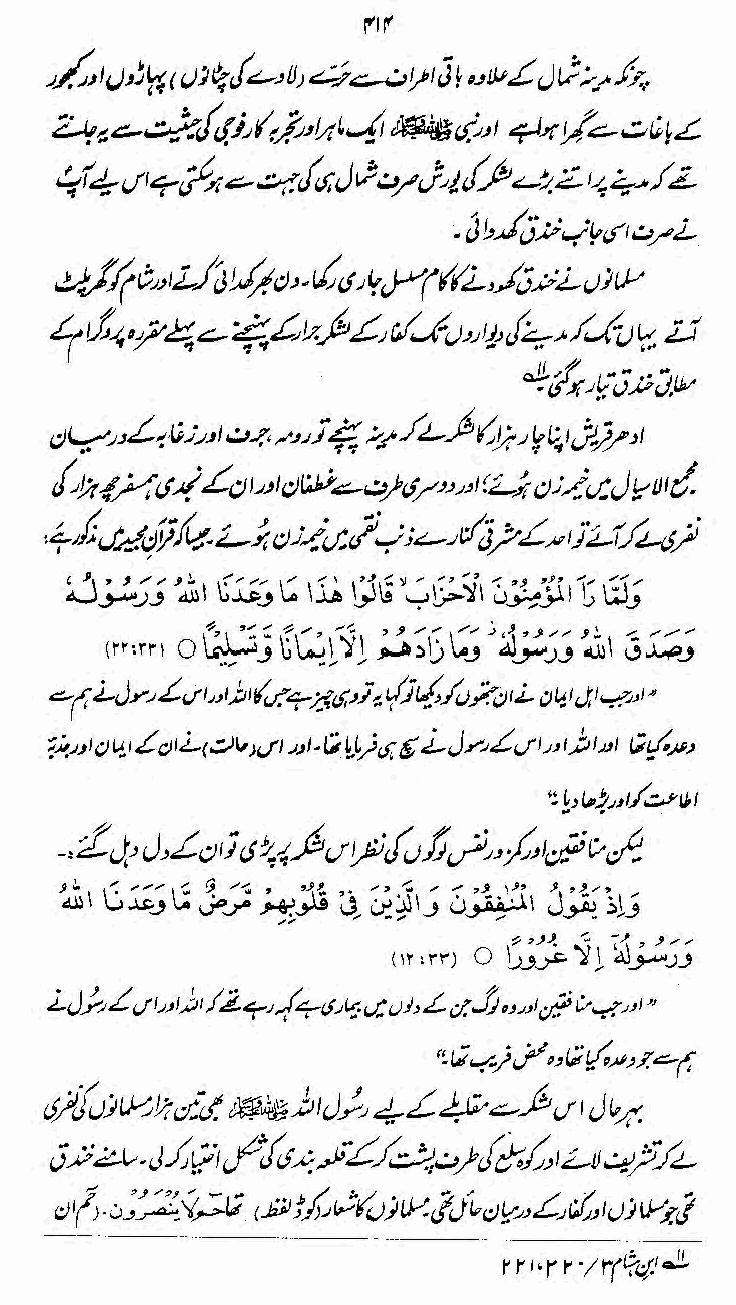 ۴۱۴
چونکہ مدینہ شمال کے علاوہ باقی اطراف سے حَرّے (لاوے کی چٹانوں) پہاڑوں اور کھجور
کے باغات سے گِھرا ہوا ہے اور نبی ﷺ ایک ماہر اور تجربہ کار فوجی کی حیثیت سے یہ جانتے
تھے کہ مدینے پر اتنے بڑے لشکر کی یورش صرف شمال ہی کی جہت سے ہو سکتی ہے اس لیے آپؐ
نے صرف اسی جانب خندق کھدوائی ۔
مسلمانوں نے خندق کھودنے کا کام مسلسل جاری رکھا۔ دن بھر کھدائی کرتے اور شام کو گھر پلٹ
آتے یہاں تک کہ مدینے کی دیواروں تک کفار کے لشکر جرار کے پہنچنے سے پہلے مقررہ پروگرام کے
مطابق خندق تیار ہو گئی۔ ؎۱۱
ادھر قریش اپنا چار ہزار کا لشکر لے کر مدینہ پہنچے تو رومہ، جرف اور زغابہ کے درمیان
مجمع الاسیال میں خیمہ زن ہُوئے؛ اور دوسری طرف سے غطفان اور ان کے نجدی ہمسفر چھ ہزار کی
نفری لے کر آئے تو احد کے مشرقی کنارے ذنب نقمی میں خیمہ زن ہُوئے۔ جیسا کہ قرآنِ مجید میں مذکور ہے:
وَلَمَّا رَاَ الْمُؤْمِنُوْنَ الْاَحْزَابَ ۙ قَالُوْا هٰذَا مَا وَعَدَنَا اللّٰهُ وَرَسُوْلُهٗ
وَصَدَقَ اللّٰهُ وَرَسُوْلُهٗ ۡ وَمَا زَادَهُمْ اِلَّاۤ اِيْمَانًا وَّتَسْلِيْمًا ○ (۲۲:۳۳)
”اور جب اہل ایمان نے ان جتھوں کو دیکھا تو کہا یہ تو وہی چیز ہے جس کا اللہ اور اس کے رسول نے ہم سے
وعدہ کیا تھا اور اللہ اور اس کے رسول نے سچ ہی فرمایا تھا۔ اور اس (حالت) نے ان کے ایمان اور جذبۂ
اطاعت کو اور بڑھا دیا۔“
لیکن منافقین اور کمزور نفس لوگوں کی نظر اس لشکر پر پڑی تو ان کے دل دہل گئے:۔
وَاِذْ يَقُوْلُ الْمُنٰفِقُوْنَ وَ الَّذِيْنَ فِيْ قُلُوْبِهِمْ مَّرَضٌ مَّا وَعَدَنَا اللّٰهُ
وَرَسُوْلُهٗۤ اِلَّا غُرُوْرًا ○ (۱۲:۳۳)
”اور جب منافقین اور وہ لوگ جن کے دلوں میں بیماری ہے کہہ رہے تھے کہ اللہ اور اس کے رسُول نے
ہم سے جو وعدہ کیا تھا وہ محض فریب تھا۔“
بہرحال اس لشکر سے مقابلے کے لیے رسُول اللہ ﷺ بھی تین ہزار مسلمانوں کی نفری
لے کر تشریف لائے اور کوہ سلع کی طرف پشت کر کے قلعہ بندی کی شکل اختیار کر لی۔ سامنے خندق
تھی جو مسلمانوں اور کفار کے درمیان حائل تھی۔ مسلمانوں کا شعار (کوڈ لفظ) تھا حٰمٓ لَا يُنْصَرُوْنَ۔ (حٰمٓ ان
؎۱۱ ابن ہشام ۳/۲۲۰، ۲۲۱